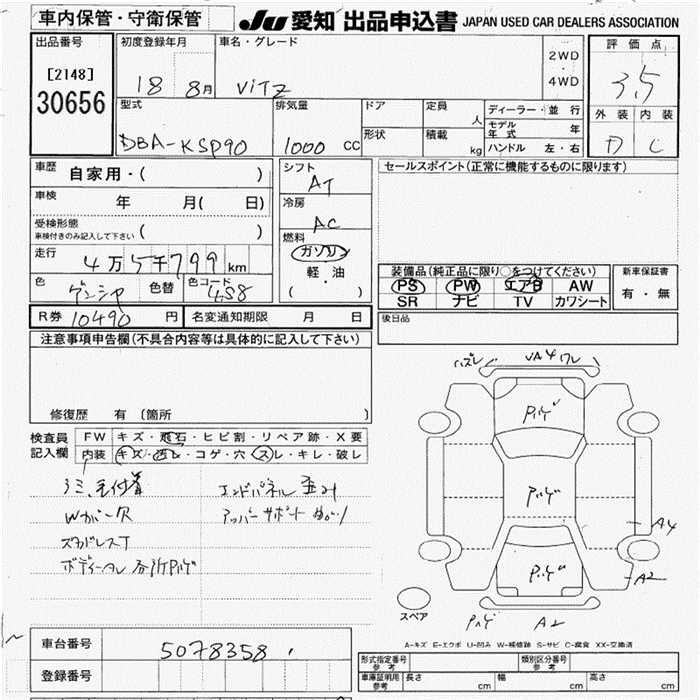 車内保管・守衛保管
JU 愛知 出品申込書 JAPAN USED CAR DEALERS ASSOCIATION
出品番号
[2148]
30656
初度登録年月
18 8月
車名・グレード
VITZ
2WD
・
4WD
評価点
3.5
外装 内装
D C
型式
DBA-KSP90
排気量
1000 cc
ドア
形状
定員 人
積載 kg
ディーラー・並行
モデル年式 年
ハンドル 左・右
車歴 自家用・( )
車検 年 月( 日)
受検形態
車検付きのみ記入して下さい ( )
走行
4万5千799km
色
色替
色コード
4S8
シフト
AT
冷房
AC
燃料
ガソリン
軽・油
( )
セールスポイント(正常に機能するものに限ります)
装備品(純正品に限り○をつけてください)
PS PW エアB AW
SR ナビ TV カワシート
新車保証書
有・無
後日品
R券 10490 円
名変通知期限 月 日
注意事項申告欄(不具合内容等は具体的に記入して下さい)
修復歴 有 (箇所 )
検査員記入欄
FW キズ・飛石・ヒビ割・リペア跡・X要
内装 キズ・汚レ・コゲ・穴・スレ・キレ・破レ
シミ、毛付着
Wカバー欠
スカドレスT
エンドパネル歪み
ハズレ
VA4 ワレ
A4
A2
A2
スペア
A-キズ E-エクボ U-凹み W-補修跡 S-サビ C-腐食 XX-交換済
車台番号
5078358
登録番号
型式指定番号
参考
類別区分番号
参考
車庫証明用
参考
長さ cm
幅 cm
高さ cm